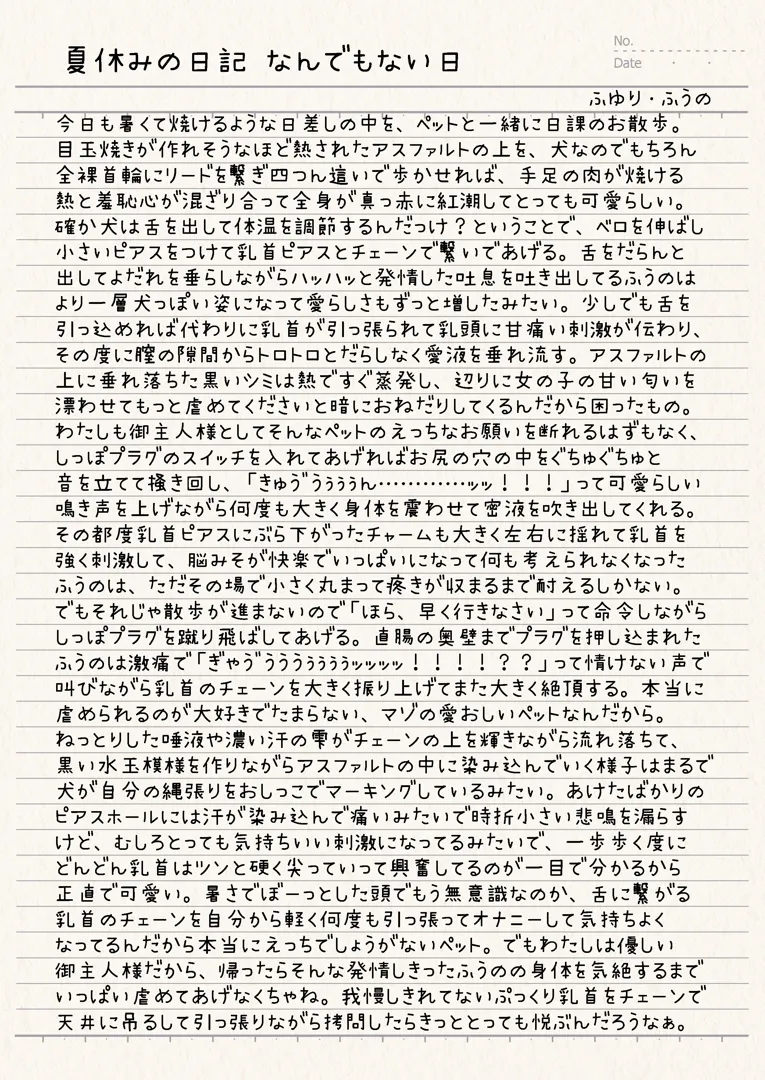 夏休みの日記 なんでもない日
No.
Date ・ ・
ふゆり・ふうの
今日も暑くて焼けるような日差しの中を、ペットと一緒に日課のお散歩。
目玉焼きが作れそうなほど熱されたアスファルトの上を、犬なのでもちろん
全裸首輪にリードを繋ぎ四つん這いで歩かせれば、手足の肉が焼ける
熱と羞恥心が混ざり合って全身が真っ赤に紅潮してとっても可愛らしい。
確か犬は舌を出して体温を調節するんだっけ？ということで、ベロを伸ばし
小さいピアスをつけて乳首ピアスとチェーンで繋いであげる。舌をだらんと
出してよだれを垂らしながらハッハッと発情した吐息を吐き出してるふうのは
より一層犬っぽい姿になって愛らしさもずっと増したみたい。少しでも舌を
引っ込めれば代わりに乳首が引っ張られて乳頭に甘痛い刺激が伝わり、
その度に膣の隙間からトロトロとだらしなく愛液を垂れ流す。アスファルトの
上に垂れ落ちた黒いシミは熱ですぐ蒸発し、辺りに女の子の甘い匂いを
漂わせてもっと虐めてくださいと暗におねだりしてくるんだから困ったもの。
わたしも御主人様としてそんなペットのえっちなお願いを断れるはずもなく、
しっぽプラグのスイッチを入れてあげればお尻の穴の中をぐちゅぐちゅと
音を立てて掻き回し、「きゅゔぅぅぅぅん…………………ッッ！！！」って可愛らしい
鳴き声を上げながら何度も大きく身体を震わせて密液を吹き出してくれる。
その都度乳首ピアスにぶら下がったチャームも大きく左右に揺れて乳首を
強く刺激して、脳みそが快楽でいっぱいになって何も考えられなくなった
ふうのは、ただその場で小さく丸まって疼きが収まるまで耐えるしかない。
でもそれじゃ散歩が進まないので「ほら、早く行きなさい」って命令しながら
しっぽプラグを蹴り飛ばしてあげる。直腸の奥壁までプラグを押し込まれた
ふうのは激痛で「ぎゃゔぅぅぅぅぅぅぅッッッッ！！！！？？」って情けない声で
叫びながら乳首のチェーンを大きく振り上げてまた大きく絶頂する。本当に
虐められるのが大好きでたまらない、マゾの愛おしいペットなんだから。
ねっとりした唾液や濃い汗の雫がチェーンの上を輝きながら流れ落ちて、
黒い水玉模様を作りながらアスファルトの中に染み込んでいく様子はまるで
犬が自分の縄張りをおしっこでマーキングしているみたい。あけたばかりの
ピアスホールには汗が染み込んで痛いみたいで時折小さい悲鳴を漏らす
けど、むしろとっても気持ちいい刺激になってるみたいで、一歩歩く度に
どんどん乳首はツンと硬く尖っていって興奮してるのが一目で分かるから
正直で可愛い。暑さでぼーっとした頭でもう無意識なのか、舌に繋がる
乳首のチェーンを自分から軽く何度も引っ張ってオナニーして気持ちよく
なってるんだから本当にえっちでしょうがないペット。でもわたしは優しい
御主人様だから、帰ったらそんな発情しきったふうのの身体を気絶するまで
いっぱい虐めてあげなくちゃね。我慢しきれてないぷっくり乳首をチェーンで
天井に吊るして引っ張りながら拷問したらきっととっても悦ぶんだろうなぁ。